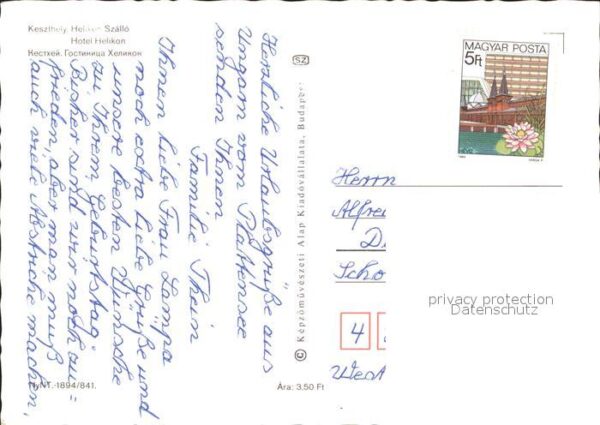 Keszthely, Helikon Szálló
Hotel Helikon
Кестхей, Гостиница Хеликон
Herzliche Urlaubsgrüße aus
Ungarn vom Plattensee
senden Ihnen
Familie Thein
Ihnen liebe Frau Lampa
noch extra liebe Grüße und
unsere besten Wünsche
zu Ihrem Geburtstag.
Bisher sind wir noch zu=
frieden, aber man muß
auch viele Abstriche machen.
NyNT.-1894/841.
Ára: 3,50 Ft
© Képzőművészeti Alap Kiadóvállalata, Budapest
SZ
MAGYAR POSTA
5Ft
Herrn
Alfre
D
Scho
4
West
privacy protection
Datenschutz